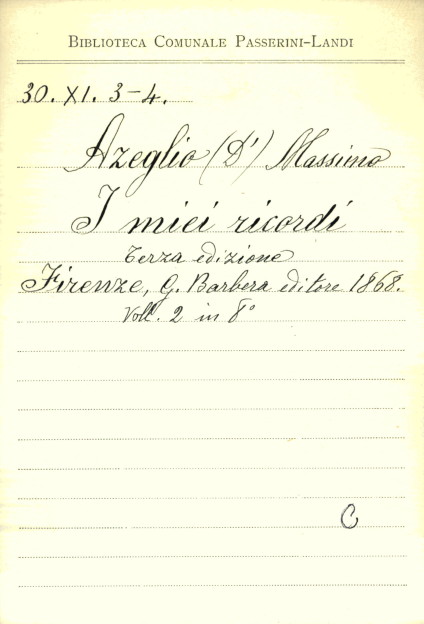 Biblioteca Comunale Passerini-Landi
30. XI. 3-4.
Azeglio (D') Massimo
I miei ricordi
Terza edizione
Firenze, G. Barbera editore 1868.
Voll. 2 in 8°
C